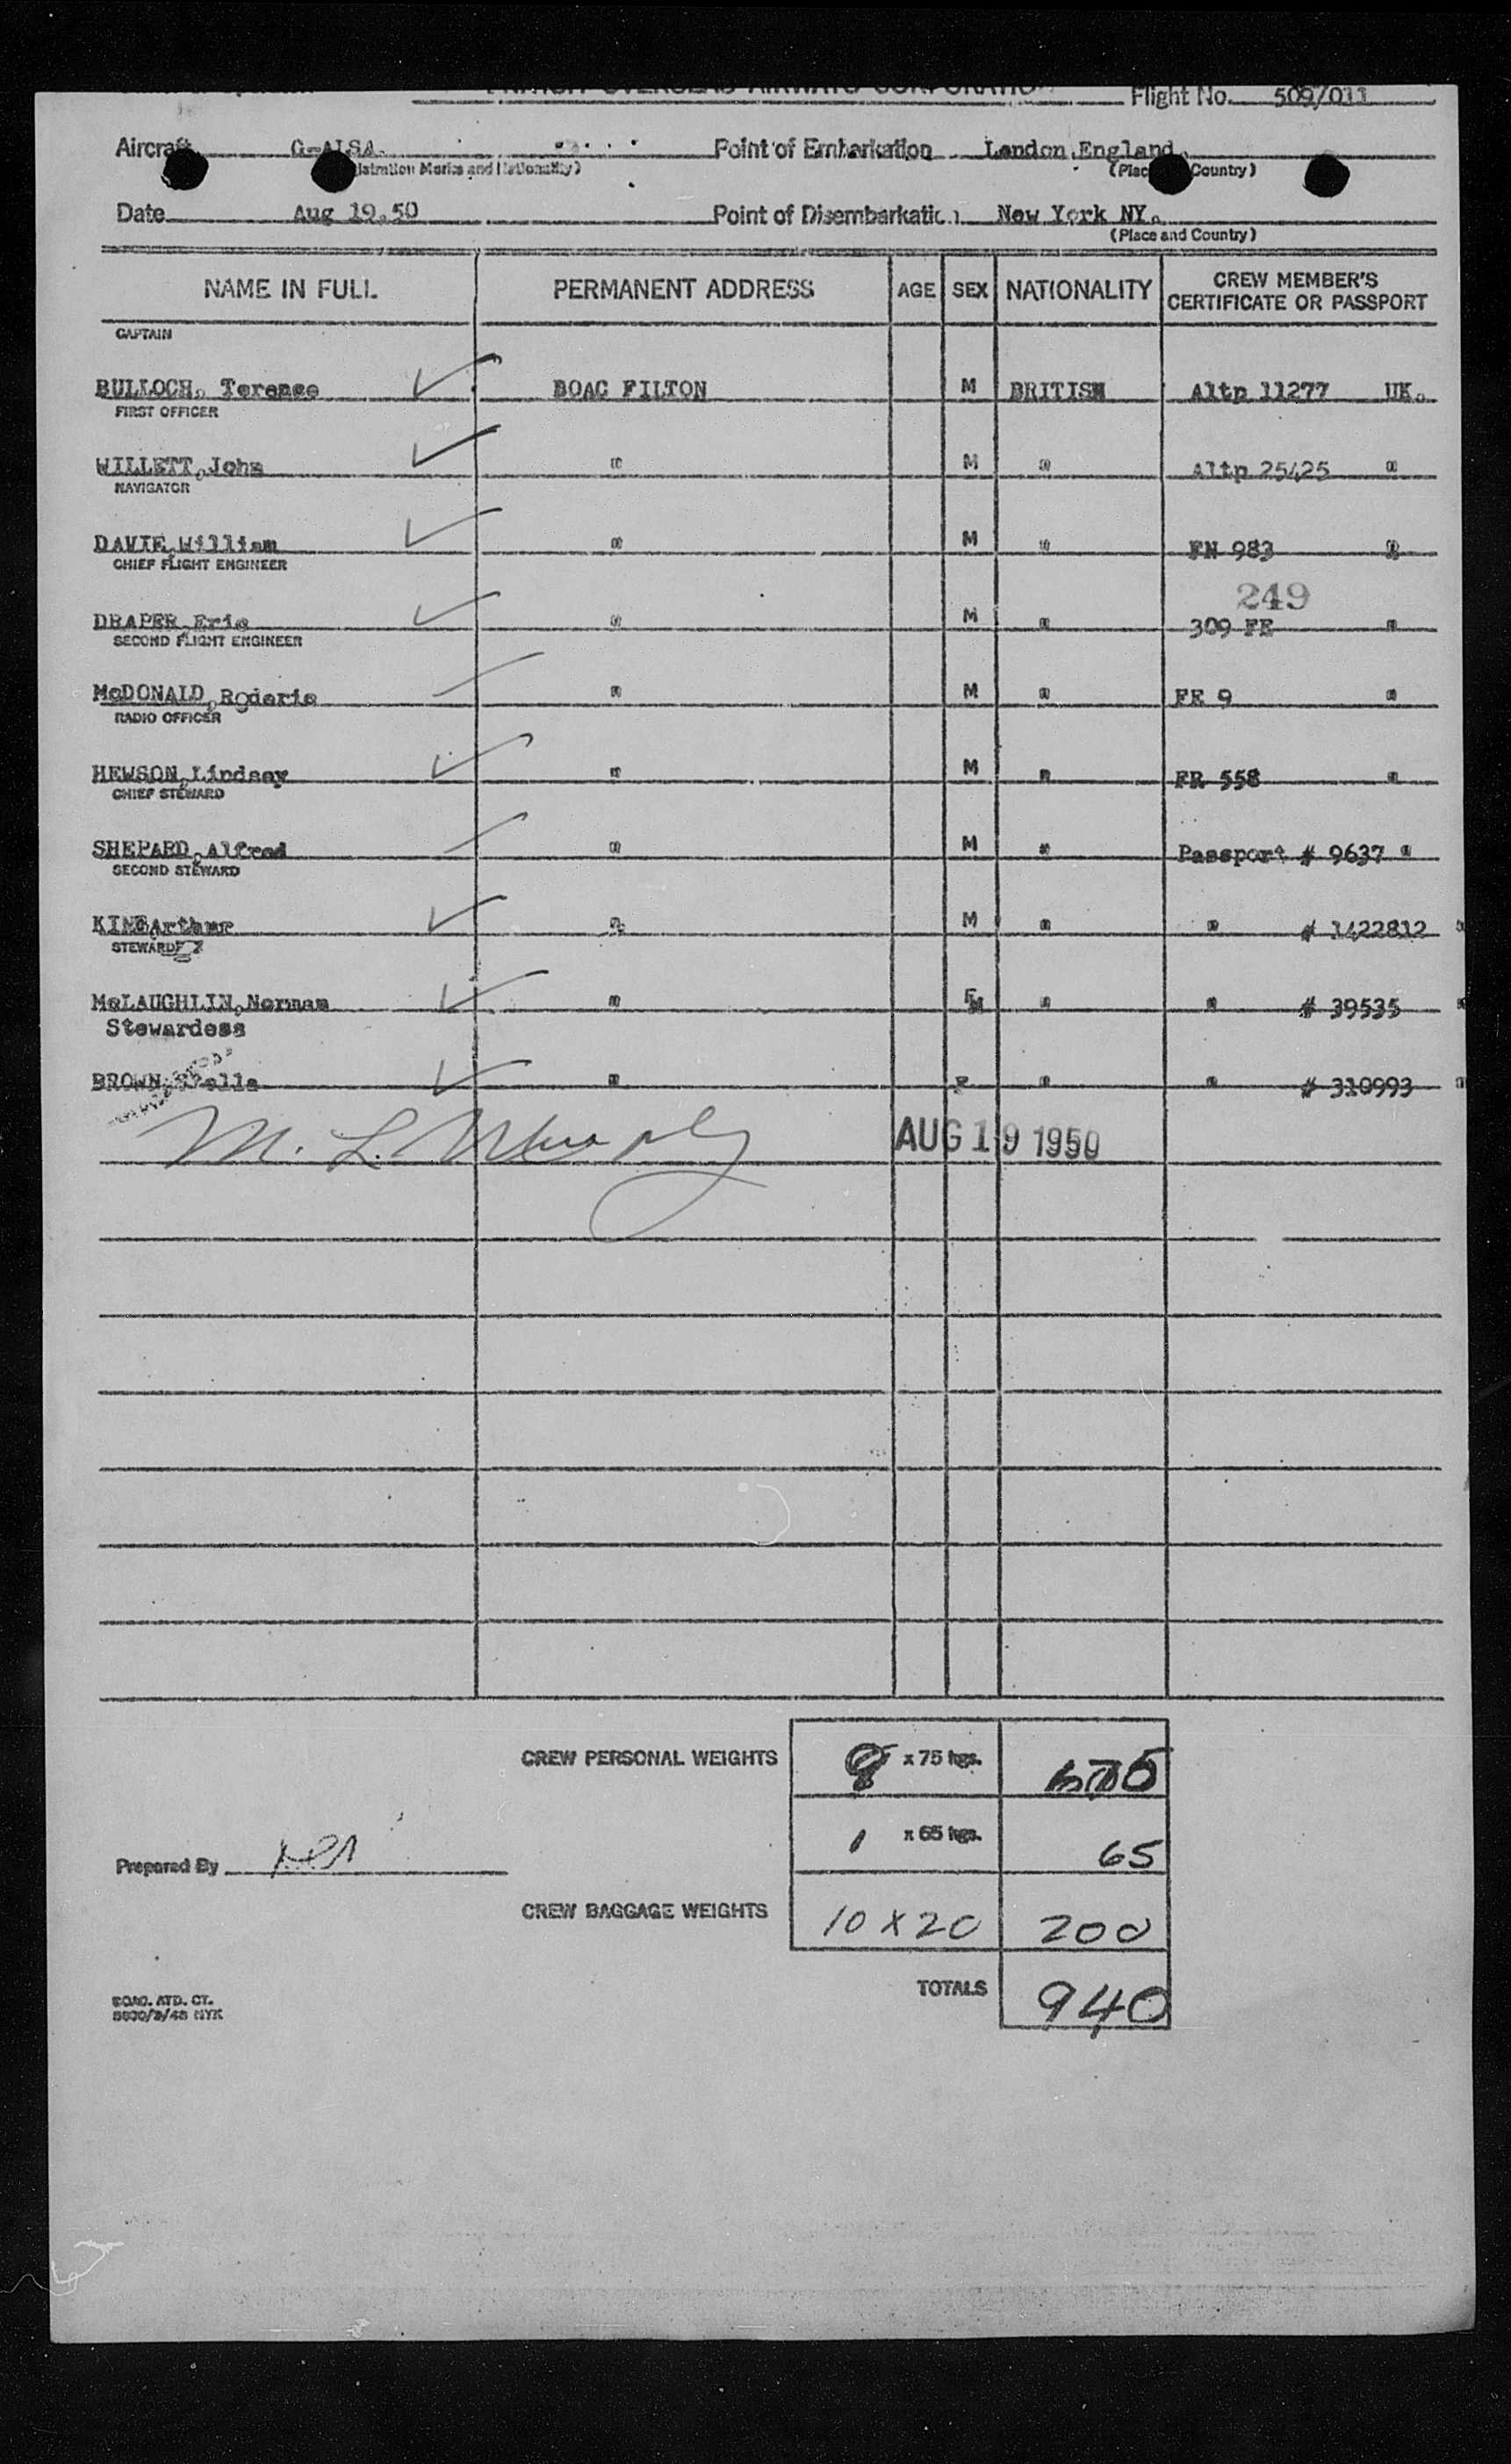 BRITISH OVERSEAS AIRWAYS CORPORATION Flight No. 509/011
Aircraft G-ALSA. Point of Embarkation London, England.
(Place Country)
Date Aug 19.50 Point of Disembarkation New York NY.
(Place and Country)
NAME IN FULL PERMANENT ADDRESS AGE SEX NATIONALITY CREW MEMBER'S CERTIFICATE OR PASSPORT
CAPTAIN
BULLOCH, Terence BOAC FILTON M BRITISH Altp 11277 UK.
FIRST OFFICER
WILLETT, John " M " Altp 25425 "
NAVIGATOR
DAVIE, William " M " FN 983 "
CHIEF FLIGHT ENGINEER
249
DRAPER, Eric " M " 309 FE "
SECOND FLIGHT ENGINEER
McDONALD, Roderic " M " FE 9 "
RADIO OFFICER
HEWSON, Lindsay " M " FR 558 "
CHIEF STEWARD
SHEPARD, Alfred " M " Passport # 9637 "
SECOND STEWARD
KING Arthur " M " " # 1422812 "
STEWARD
McLAUGHLIN, Norman " M " " # 39535 "
Stewardess
BROWN, Stella " F " " # 310993 "
M. L. Murphy AUG 19 1950
CREW PERSONAL WEIGHTS 9 x 75 kgs. 675
1 x 65 kgs. 65
Prepared By
CREW BAGGAGE WEIGHTS 10 X 20 200
TOTALS 940
BOAC. ATD. CT.
NYK